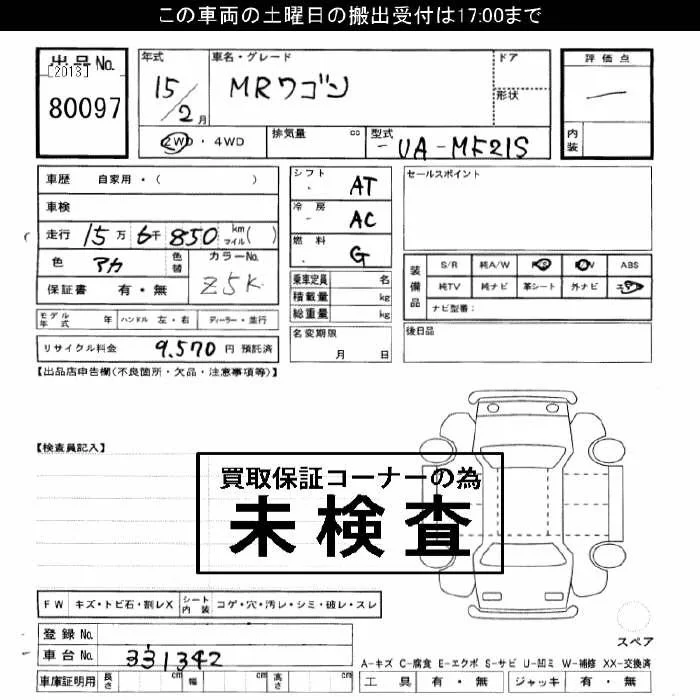 この車両の土曜日の搬出受付は17:00まで
出品No. [2013] 80097
年式 15/2月
車名・グレード MRワゴン
ドア
形状
評価点 一
内装
2WD・4WD 排気量 cc 型式 UA-MF21S
車歴 自家用・( )
車検
走行 15万6千850 km マイル( )
色 アカ 色替 カラーNo. Z5K
保証書 有・無
モデル年式 年 ハンドル 左・右 ディーラー・並行
リサイクル料金 9,570円 預託済
シフト AT
冷房 AC
燃料 G
乗車定員 名
積載量 kg
総重量 kg
名変期限 月 日
セールスポイント
装備品 S/R 純A/W P/S P/W ABS
純TV 純ナビ 革シート 外ナビ
ナビ型番:
後日品
【出品店申告欄(不良箇所・欠品・注意事項等)】
【検査員記入】
買取保証コーナーの為
未検査
FW キズ・トビ石・割レX シート内装 コゲ・穴・汚レ・シミ・破レ・スレ
登録No.
車台No. 331342
車庫証明用 長さ cm 幅 cm 高さ cm
スペア
A-キズ C-腐食 E-エクボ S-サビ U-凹ミ W-補修 XX-交換済
工具 有・無 ジャッキ 有・無